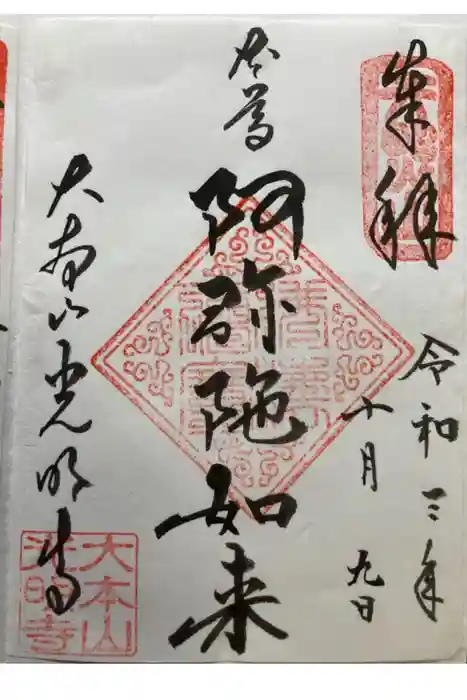 奉拝
令和三年
十月
九日
本尊
阿弥陀如来
大本山光明寺
大本山
光明寺